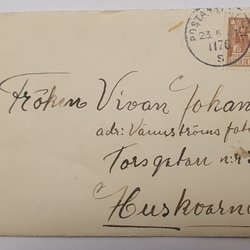 POSTAN
23.5
1176
S
Fröken Vivan Johan
adr: Vännströms fab
Torsgatan n:r 3
Huskvarna